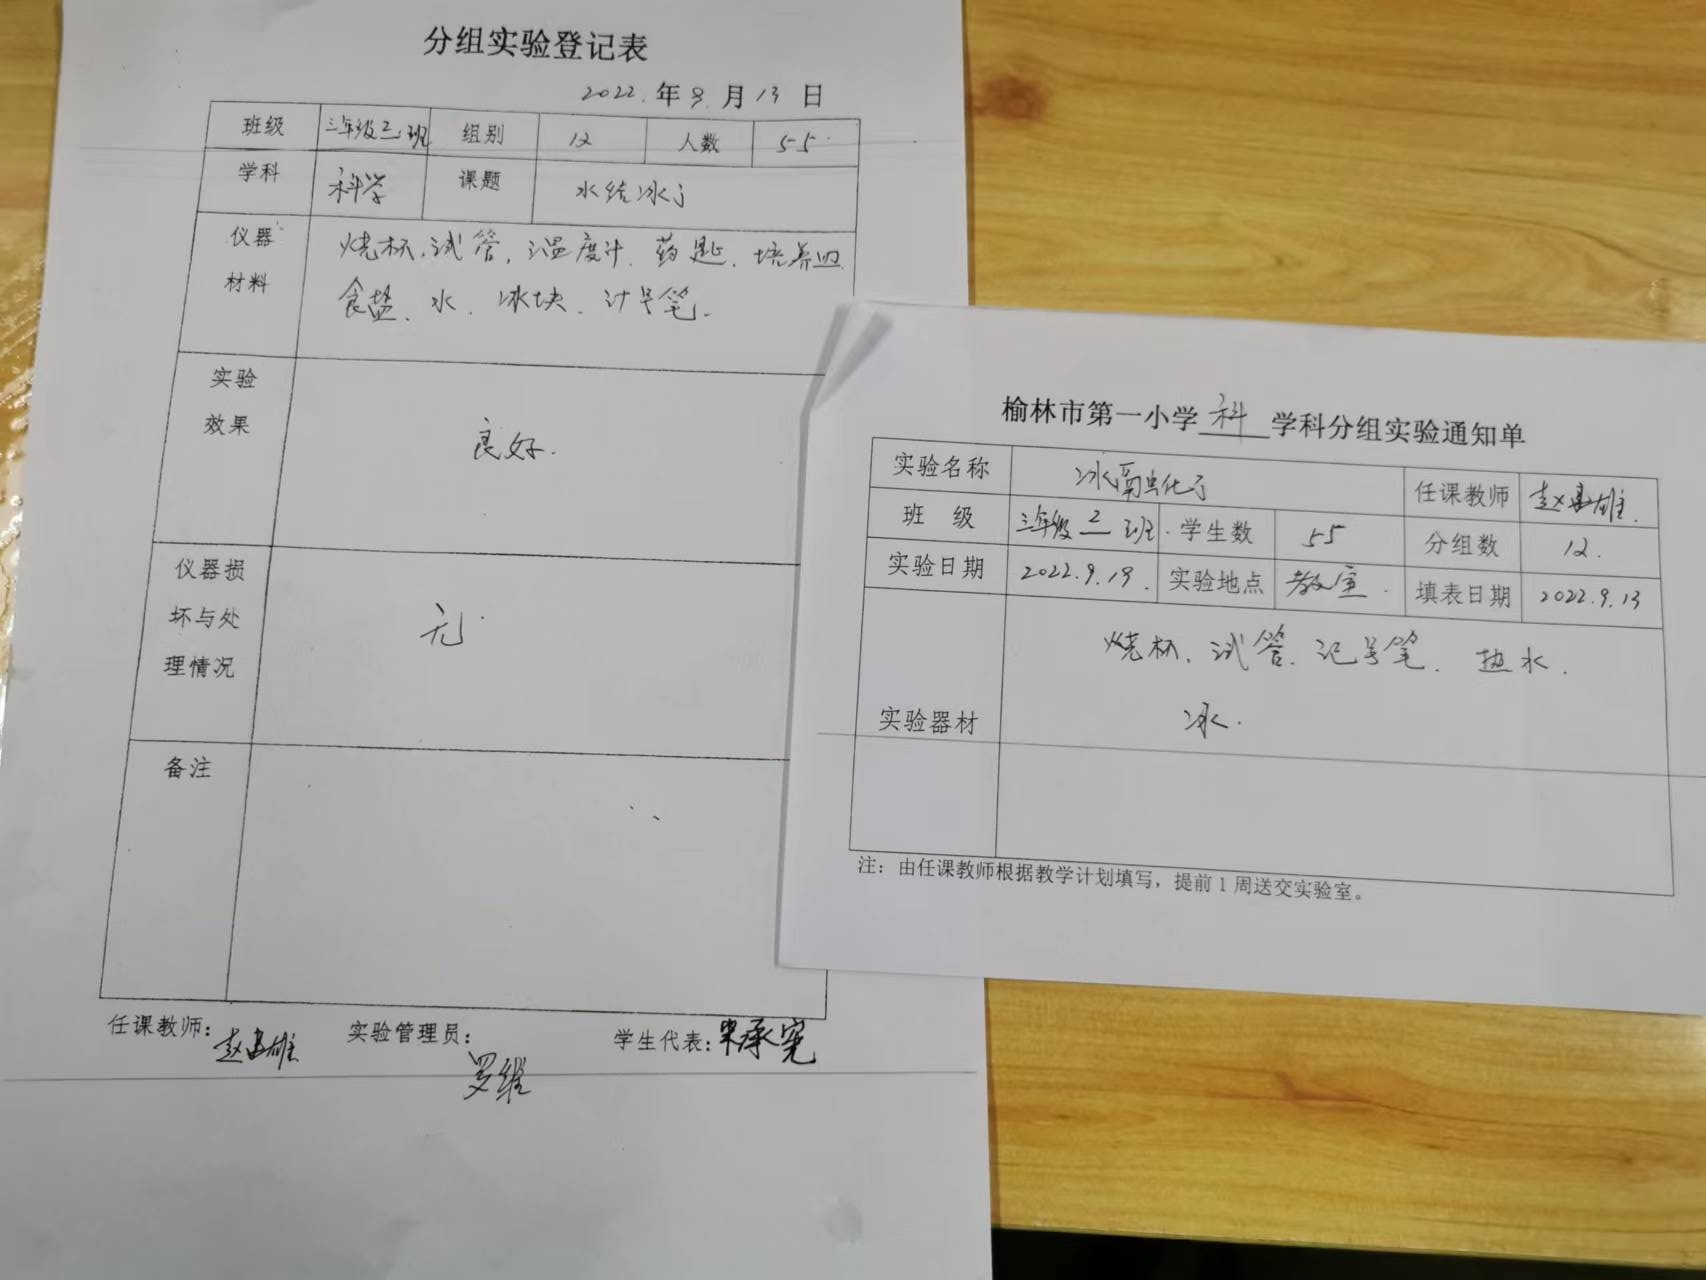 分组实验登记表
2022.年9月13日
班级 三年级二班 组别 12 人数 55
学科 科学 课题 水结冰了
仪器材料 烧杯、试管、温度计、药匙、培养皿
食盐、水、冰块、计号笔.
实验效果 良好.
仪器损坏与处理情况 无.
备注
任课教师: 赵建雄 实验管理员: 罗维 学生代表: 承宪
榆林市第一小学科学科分组实验通知单
实验名称 冰融化了 任课教师 赵建雄.
班 级 三年级二班. 学生数 55 分组数 12.
实验日期 2022.9.19. 实验地点 教室. 填表日期 2022.9.13
实验器材 烧杯、试管、记号笔、热水.
冰.
注：由任课教师根据教学计划填写，提前1周送交实验室。